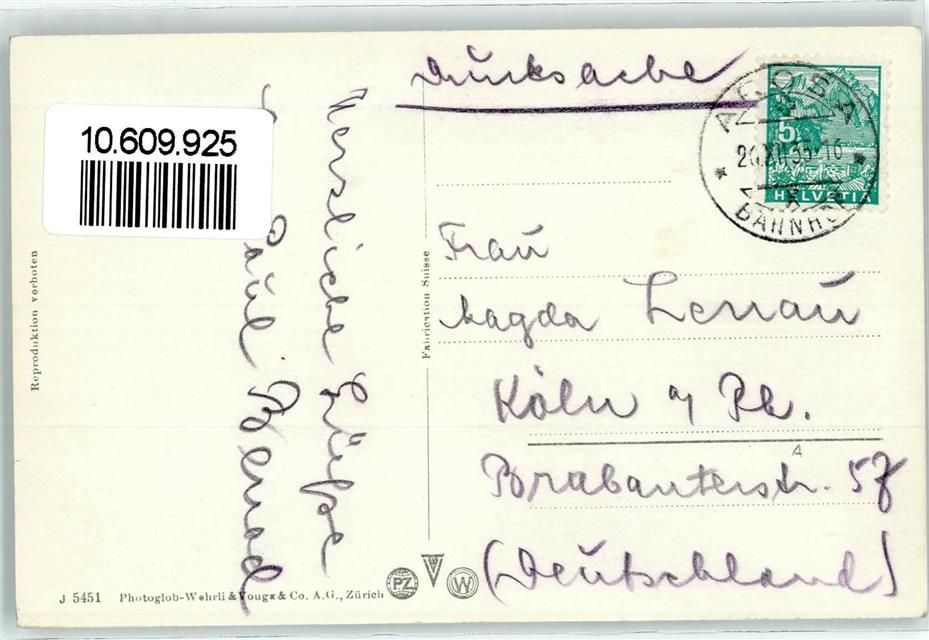 Drucksache
AROSA
20.XII.35-10
BAHNHOF
5
HELVETIA
10.609.925
Herzliche Grüße
Paul
Frau
Magda Lenau
Köln a/Rh.
Brabanterstr. 57
(Deutschland)
Reproduktion verboten
Fabrication Suisse
J 5451 Photoglob-Wehrli & Vouga & Co. A.G., Zürich
PZ
W